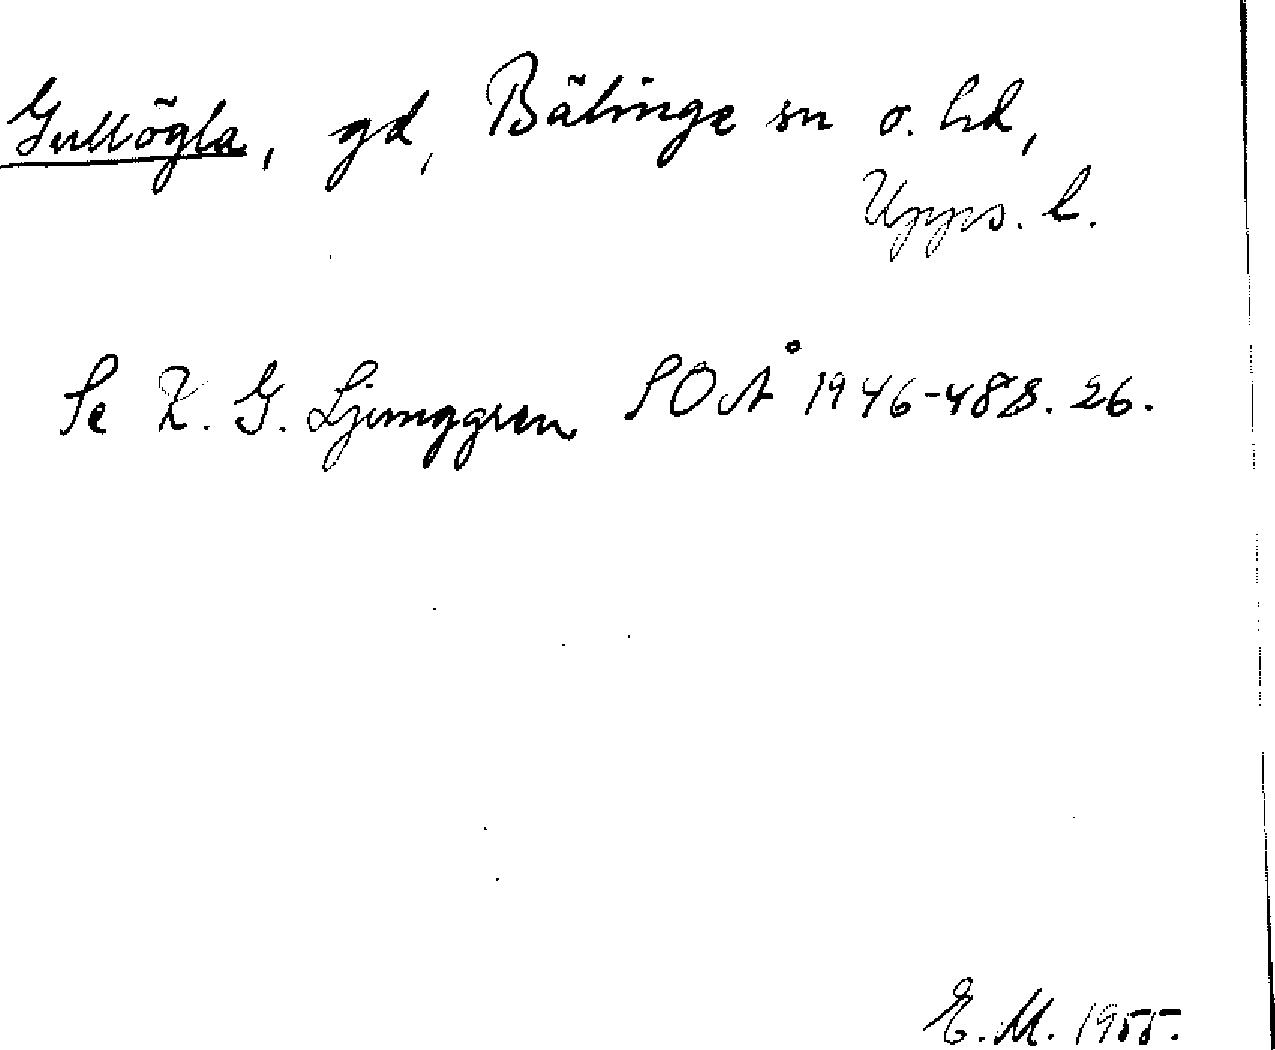 Gullögla, gd, Bälinge sn o. hd,
Upps. l.
Se K. G. Ljunggren SOÅ 1946-48 s. 26.
E. M. 1955.